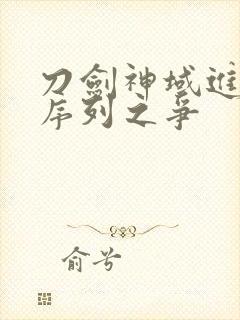 刀劍神域進
序列之爭
俞兮